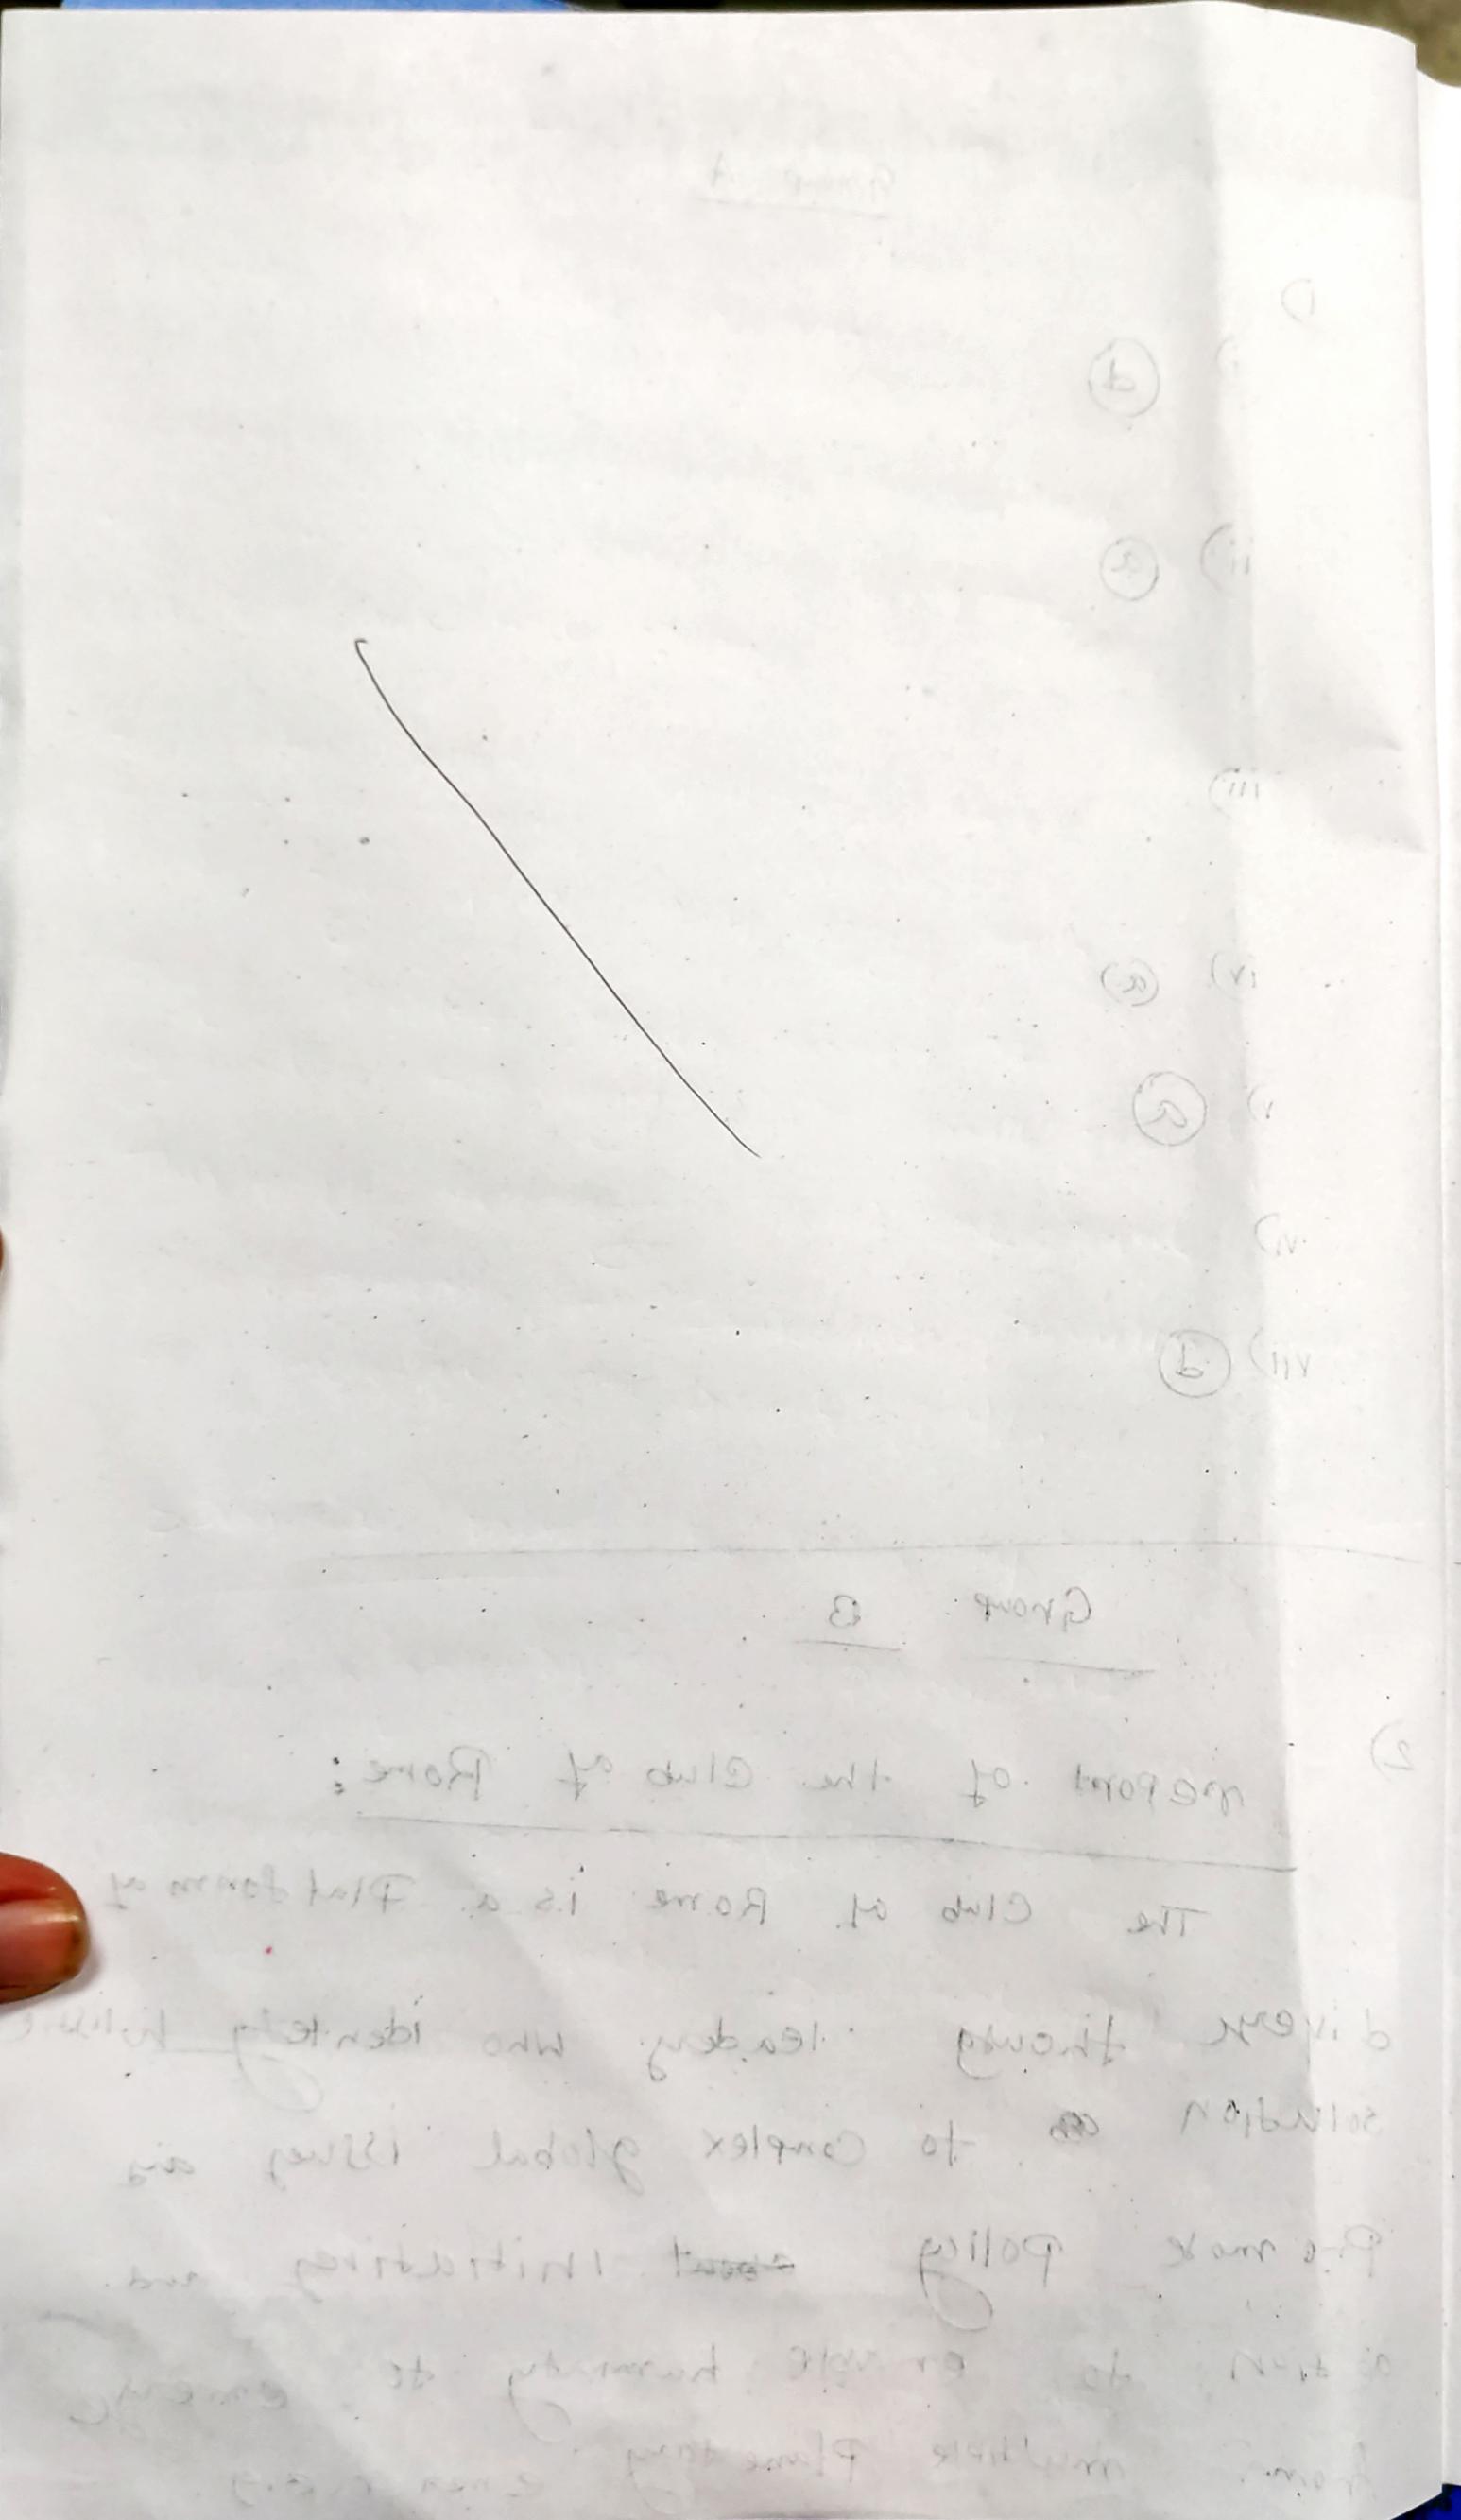 Group A
1)
i) d
ii) a
iii)
iv) a
v) a
vi)
vii) d
Group B
2)
report of the Club of Rome:
The Club of Rome is a Platform of
diverse leaders who identify
solution to complex global issues
Promote Policy initiatives and
to enable humanity to emerge
from multiple Planetary